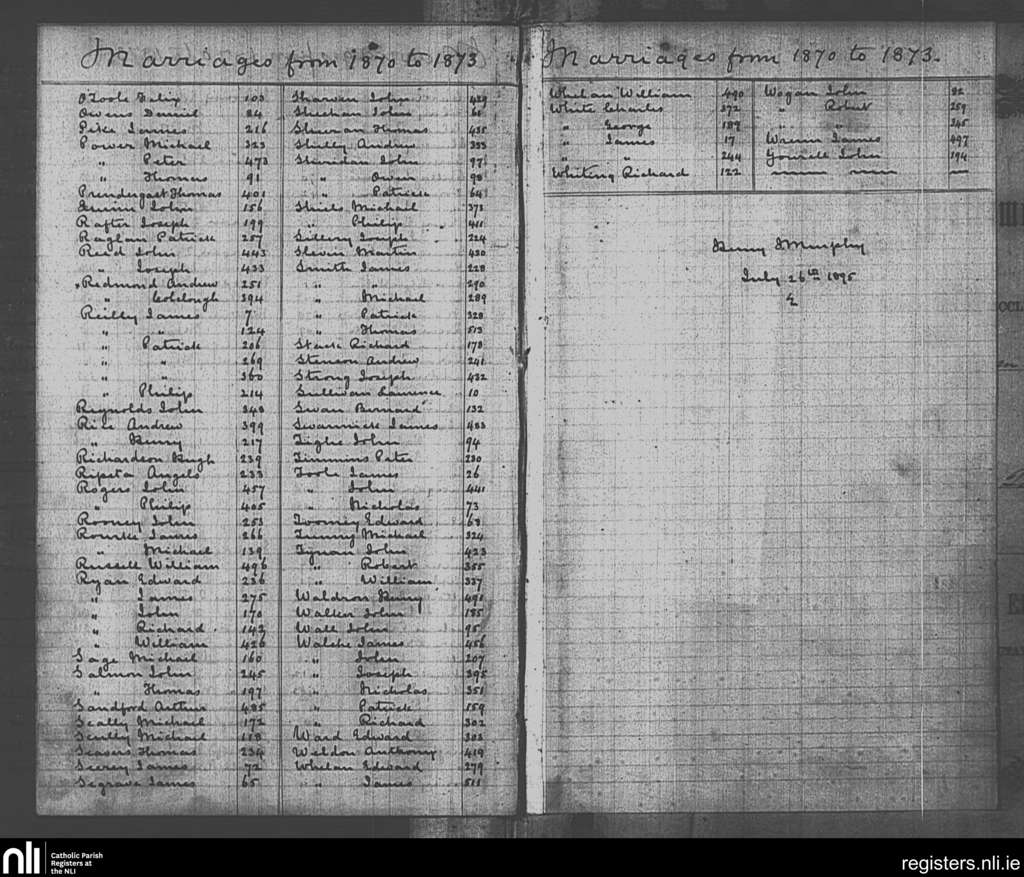 Marriages from 1870 to 1873
O'Toole Felix 103
Owens Daniel 84
Pike James 216
Power Michael 323
" Peter 473
" Thomas 91
Prendergast Thomas 401
Quinn John 156
Rafter Joseph 199
Raglan Patrick 257
Reid John 443
" Joseph 433
Redmond Andrew 251
" Colclough 394
Reilly James 7
" " 124
" Patrick 206
" " 269
" " 360
" Philip 214
Reynolds John 340
Rice Andrew 399
" Henry 217
Richardson Hugh 239
Ripeta Angelo 233
Rogers John 457
" Philip 405
Rooney John 253
Rourke James 266
" Michael 139
Russell William 496
Ryan Edward 236
" James 275
" John 170
" Richard 142
" William 426
Sage Michael 160
Salmon John 245
" Thomas 197
Sandford Arthur 485
Scally Michael 172
Scully Michael 118
Seavers Thomas 234
Seery James 72
Segrave James 65
Sharvan John 429
Sheehan John 61
Sheeran Thomas 435
Shelly Andrew 333
Sheridan John 97
" Owen 98
" Patrick 64
Shiels Michael 373
" Philip 411
Sillery Joseph 224
Slevin Martin 430
Smith James 228
" " 290
" Michael 289
" Patrick 328
" Thomas 513
Stack Richard 178
Stenson Andrew 241
Strong Joseph 432
Sullivan Laurence 10
Swan Bernard 132
Swannick James 483
Tighe John 94
Timmins Peter 230
Toole James 26
" John 441
" Nicholas 73
Twomey Edward 63
Tunny Michael 324
Tynan John 423
" Robert 355
" William 337
Waldron Henry 491
Walker John 185
Wall John 95
Walshe James 456
" John 207
" Joseph 395
" Nicholas 351
" Patrick 159
" Richard 302
Ward Edward 303
Weldon Anthony 419
Whelan Edward 279
" James 511
Marriages from 1870 to 1873.
Whelan William 490
White Charles 372
" George 189
" James 17
" " 244
Whiting Richard 122
Wogan John 82
" Robert 259
" " 345
Wrenn James 497
Yourell John 194
Henry J Murphy
July 26th 1895
nli
Catholic Parish
Registers at
the NLI
registers.nli.ie